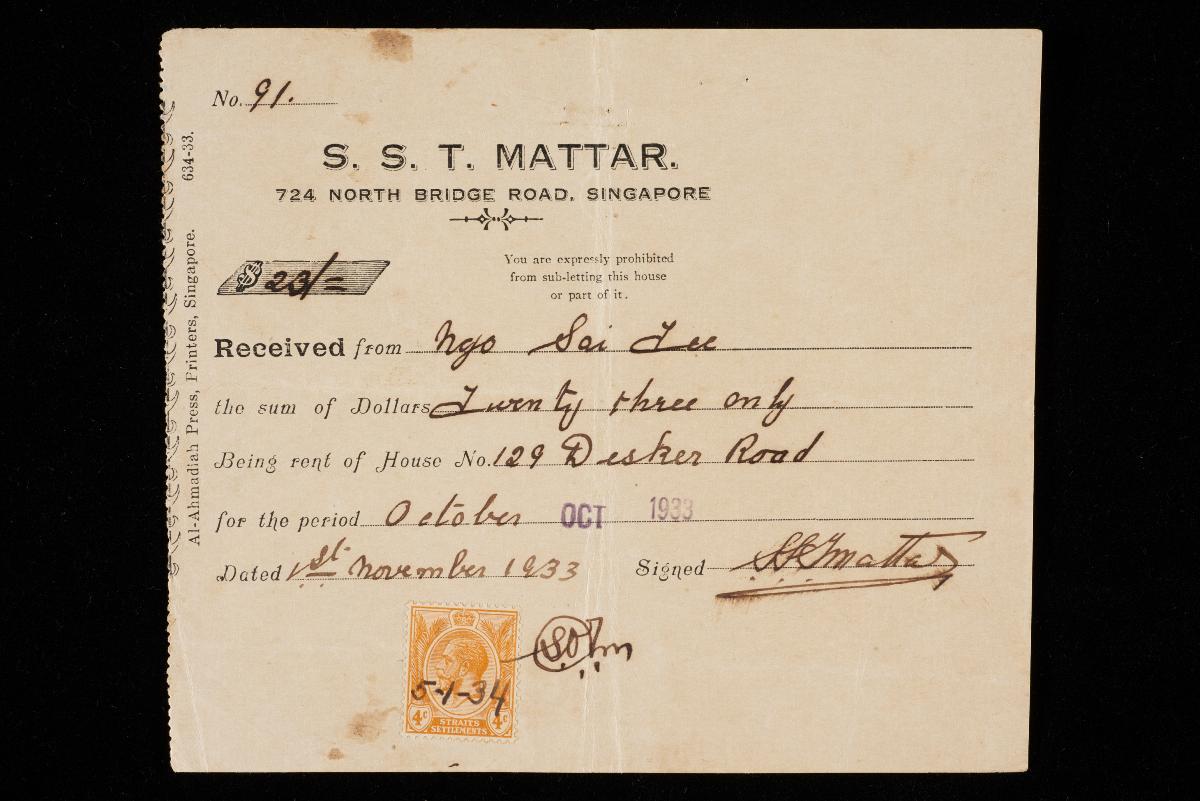 No. 91.
S. S. T. MATTAR.
724 NORTH BRIDGE ROAD, SINGAPORE
$ 23/=
You are expressly prohibited
from sub-letting this house
or part of it.
Received from Ngo Sai Tee
the sum of Dollars Twenty three only
Being rent of House No. 129 Desker Road
for the period October OCT 1933
Dated 1st November 1933 Signed SSTMattar
5-1-34
4c 4c
STRAITS
SETTLEMENTS
Al-Ahmadiah Press, Printers, Singapore. 634-33.